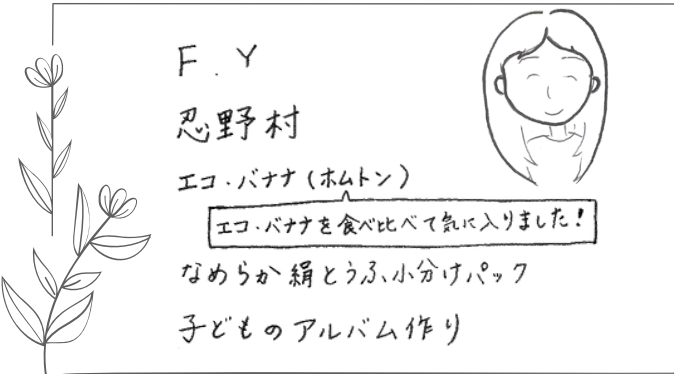 F.Y
忍野村
エコ・バナナ(ホムトン)
エコ・バナナを食べ比べて気に入りました!
なめらか絹とうふ小分けパック
子どものアルバム作り